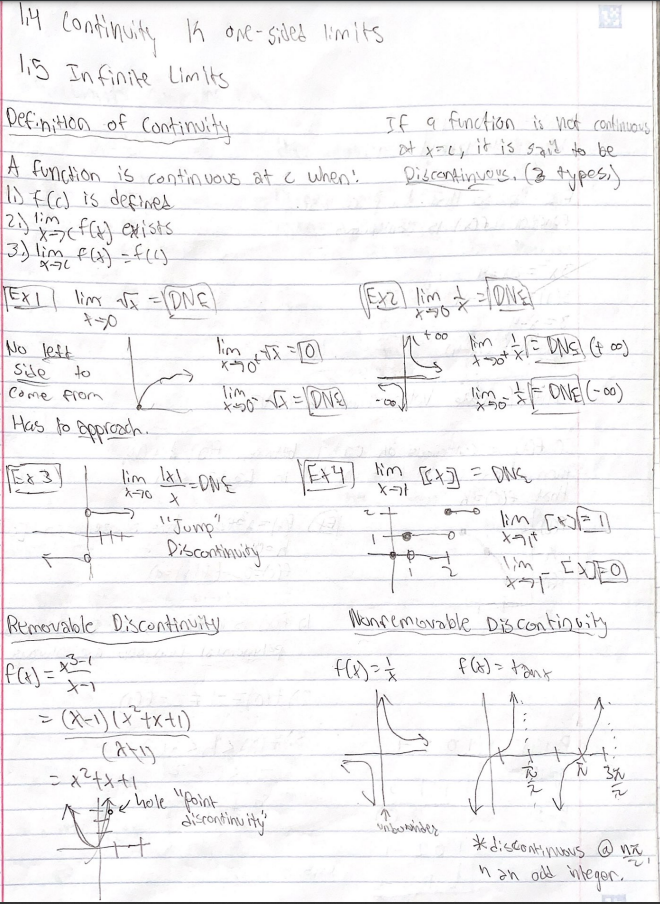 1.4 Continuity & one-sided limits
1.5 Infinite Limits
Definition of Continuity
If a function is not continuous
at x=c, it is said to be
Discontinuous. (3 types.)
A function is continuous at c when:
1.) f(c) is defined
2.) lim x→c f(x) exists
3.) lim x→c f(x) = f(c)
Ex 1 lim x→0 √x = DNE
No left
side to
come from
Has to approach.
lim x→0⁺ √x = 0
lim x→0⁻ √x = DNE
Ex 2 lim x→0 1/x = DNE
+∞
-∞
lim x→0⁺ 1/x = DNE (+∞)
lim x→0⁻ 1/x = DNE (-∞)
Ex 3 lim x→0 |x|/x = DNE
"Jump"
Discontinuity
Ex 4 lim x→1 [[x]] = DNE
2
1
1 2
lim x→1⁺ [x] = 1
lim x→1⁻ [x] = 0
Removable Discontinuity
f(x) = x³-1/x-1
= (x-1)(x²+x+1)/(x-1)
= x²+x+1
hole "point
discontinuity"
Nonremovable Discontinuity
f(x) = 1/x
f(x) = tanx
π/2 π 3π/2
*discontinuous @ nπ/2,
n an odd integer.